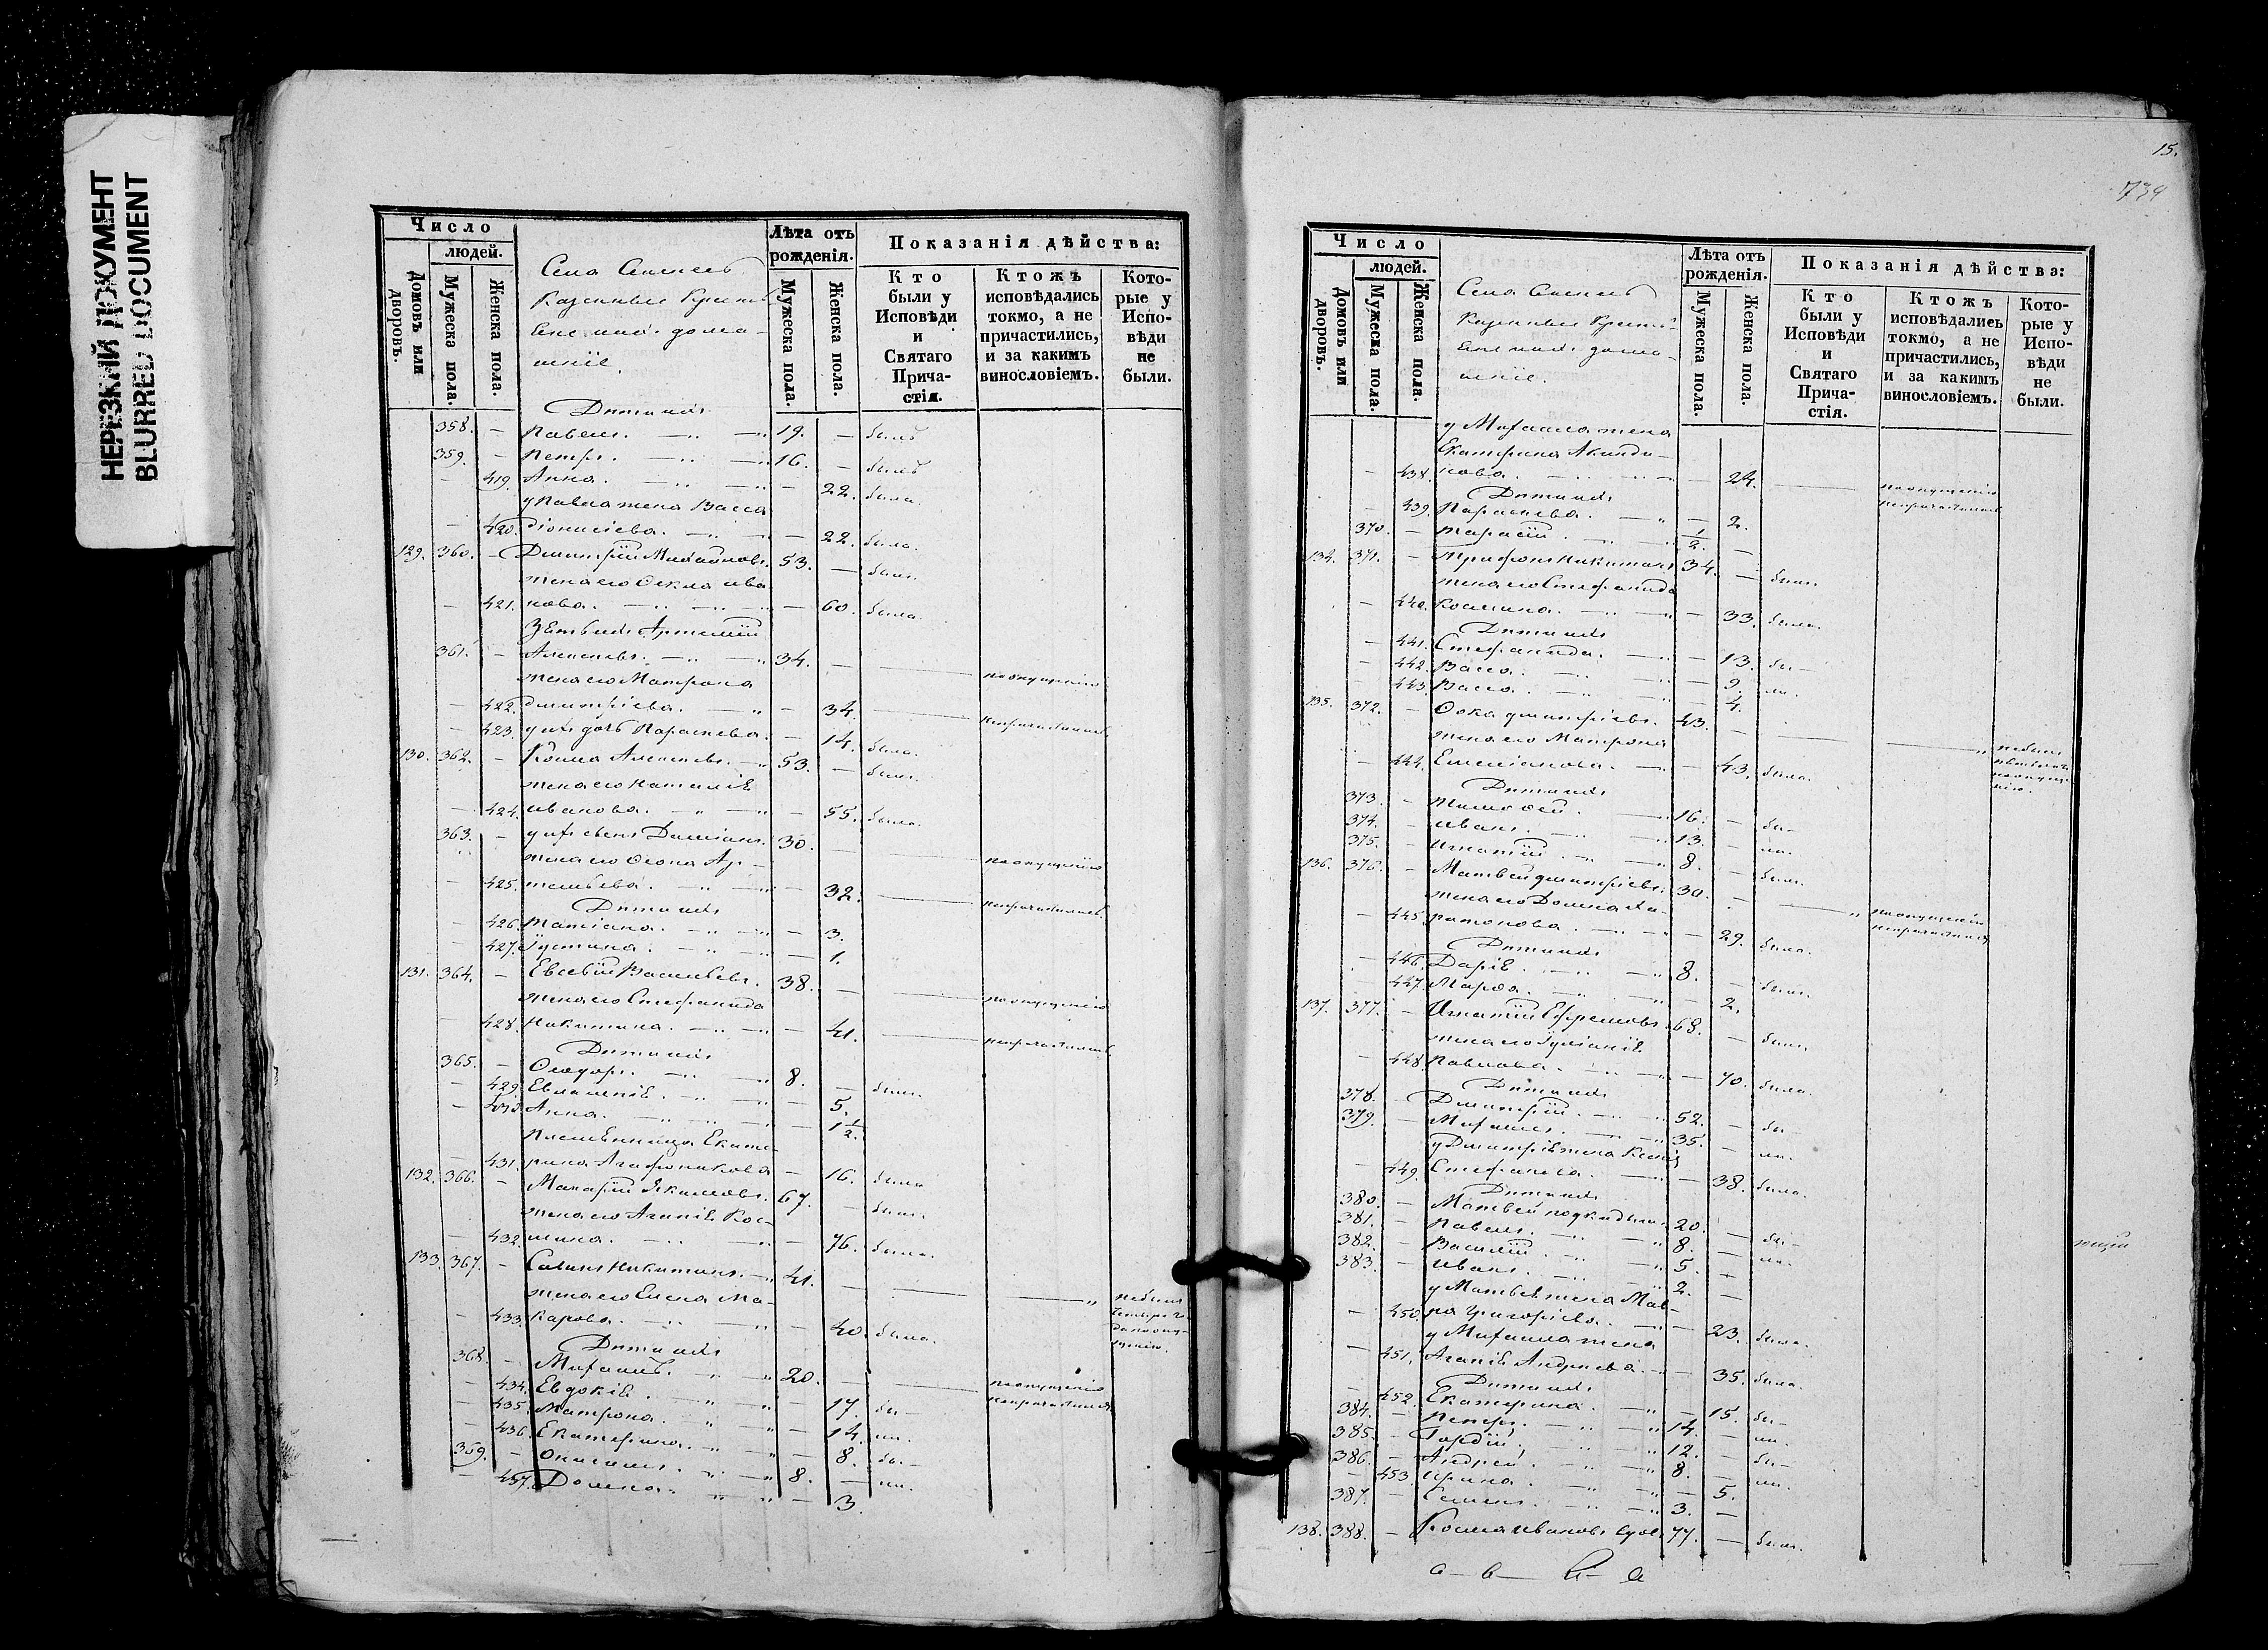 НЕРЕЗКИЙ ДОКУМЕНТ
BLURRED DOCUMENT
Число
людей.
Домовъ или дворовъ.
Мужеска пола.
Женска пола.
Села
Казенные
дома-
шніе.
Лѣта отъ рожденія.
Мужеска пола.
Женска пола.
Показанія дѣйства:
Кто были у Исповѣди и Святаго Прича-стія.
Ктожъ исповѣдались токмо, а не причастились, и за какимъ винословіемъ.
Кото-рые у Испо-вѣди не были.
358. — Павелъ. 19. — былъ
359. — Петръ. 16. — былъ
— 419. Анна. — 22. была.
у Павла жена Васса
— 420. Діонисіева. — 22. была.
129. 360. — Дмитрій 53. — былъ.
жена его Ѳекла Ива
— 421. нова. — 60. была.
Зять ихъ Артемій
361. — Алексѣевъ. 34. — по опущенію
жена его Матрона
— 422. Дмитріева. — 34. непричастились
— 423. у ихъ дочь Параскева. — 14. была.
130. 362. — Козма Алексѣевъ. 53. — былъ.
жена его Наталія
— 424. Иванова. — 55. была.
363. — у ихъ сынъ Даміанъ. 30. — по опущенію
жена его Ар-
— 425. темьева. — 32. непричастились.
Дѣти ихъ
— 426. Татіана. — 3.
— 427. Іустина. — 1.
131. 364. — Евсевій Васильевъ. 38. — по опущенію
жена его Стефанида
— 428. Никитина. — 41. непричастились
Дѣти ихъ
365. — Ѳеодоръ. 8. — былъ.
— 429. Евлампія. — 5.
— 430. Анна. — 1½
Племянница Екате-
— 431. рина Агафоникова — 16. была
132. 366. — Макарій Якимовъ. 67. — былъ.
жена его Агапія Кос-
— 432. мина. — 76. была.
133. 367. — Савинъ Никитинъ. 41. — небылъ
жена его Елена Ма-
— 433. карова. — 40. была.
Дѣти ихъ
368. — Михаилъ. 20. — по опущенію
— 434. Евдокія. — 17. бы- непричастился
— 435. Матрона. — 14. ли.
— 436. Екатерина. — 8. бы-
369. — 8. — ли.
— 437. Домна. — 3.
15.
739
Число
людей.
Домовъ или дворовъ.
Мужеска пола.
Женска пола.
Села
Казенные
дома-
шніе.
Лѣта отъ рожденія.
Мужеска пола.
Женска пола.
Показанія дѣйства:
Кто были у Исповѣди и Святаго Прича-стія.
Ктожъ исповѣдались токмо, а не причастились, и за какимъ винословіемъ.
Кото-рые у Испо-вѣди не были.
у Михаила жена
Екатерина Акинди-
— 438. нова. — 24. по опущенію
Дѣти ихъ непричастились
— 439. Параскева. — 2.
370. — Тарасій. ½. —
134. 371. — Трифонъ Никитинъ 34. — былъ.
жена его Стефанида
— 440. Космина. — 33. была.
Дѣти ихъ
— 441. Стефанида. — 13. бы-
— 442. Васса. — 9. ли.
— 443. Васса. — 4.
135. 372. — Ѳока Дмитріевъ. 43. — небылъ
жена его Матрона
— 444. Емеліанова. — 43. была.
Дѣти ихъ
373. — Тимоѳей. 16. — бы-
374. — Иванъ. 13. — ли.
375. — Игнатій. 8. — былъ.
136. 376. — Матвей Дмитріевъ. 30. — по опущенію
жена его Домна Ха- непричастился
— 445. ритонова. — 29. была.
Дѣти ихъ
— 446. Дарія. 8. — была.
— 447. Марѳа. — 2.
137. 377. — Игнатій Ефремовъ. 68. — былъ.
жена его Іуліанія
— 448. Павлова. — 70. была.
Дѣти ихъ
378. — Дмитрій. 52. — бы-
379. — Михаилъ. 35. — ли.
у Дмитрія жена Ксенія
— 449. Стефанова. — 38. была.
Дѣти ихъ
380. — Матвей 20. — бы-
381. — Павелъ. 8. — ли.
382. — Василій. 5. —
383. — Иванъ. 2. —
у Матвея жена Мав-
— 450. ра Григоріева. — 23. была.
у Михаила жена
— 451. Агапія Андреева — 35. была.
Дѣти ихъ
— 452. Екатерина. — 15. бы-
384. — Петръ. 14. — ли.
385. — Гордій. 12. — бы-
386. — Андрей. 8. — ли.
— 453. Ирина. — 5.
387. — Семенъ. 3. —
138. 388. — Козма Ивановъ вдов. 77. — былъ.